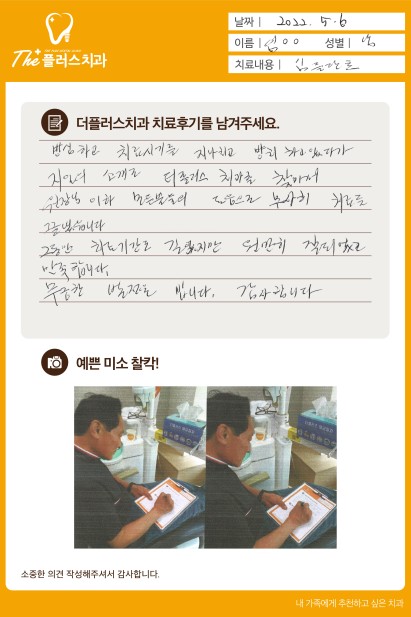 The+플러스치과
날짜 | 2022. 5. 6
이름 | 임OO 성별 | 남
치료내용 | 임플란트
더플러스치과 치료후기를 남겨주세요.
치료시기를 지나치고 방치 하고있다가
지인의 소개로 더플러스 치과를 찾아서
원장님 이하 모든분들의 무사히 치료를
그동안 치료기간도 길었지만 원만히
만족합니다.
무궁한 발전을 빕니다. 감사합니다
예쁜 미소 찰칵!
소중한 의견 작성해주셔서 감사합니다.
내 가족에게 추천하고 싶은 치과